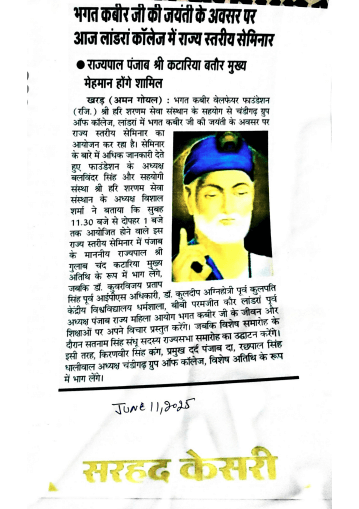 भगत कबीर जी की जयंती के अवसर पर
आज लांडरां कॉलेज में राज्य स्तरीय सेमिनार
● राज्यपाल पंजाब श्री कटारिया बतौर मुख्य
मेहमान होंगे शामिल
खरड़ (अमन गोयल) : भगत कबीर वेलफेयर फाउंडेशन
(रजि.) श्री हरि शरणम सेवा संस्थान के सहयोग से चंडीगढ़ ग्रुप
ऑफ कॉलेज, लांडरां में भगत कबीर जी की जयंती के अवसर पर
राज्य स्तरीय सेमिनार का
आयोजन कर रहा है। सेमिनार
के बारे में अधिक जानकारी देते
हुए फाउंडेशन के अध्यक्ष
बलविंदर सिंह और सहयोगी
संस्था श्री हरि शरणम सेवा
संस्थान के अध्यक्ष विशाल
शर्मा ने बताया कि सुबह
11.30 बजे से दोपहर 1 बजे
तक आयोजित होने वाले इस
राज्य स्तरीय सेमिनार में पंजाब
के माननीय राज्यपाल श्री
गुलाब चंद कटारिया मुख्य
अतिथि के रूप में भाग लेंगे,
जबकि डॉ. कुंवरविजय प्रताप
सिंह पूर्व आईपीएस अधिकारी, डॉ. कुलदीप अग्निहोत्री पूर्व कुलपति
केंद्रीय विश्वविद्यालय धर्मशाला, बीबी परमजीत कौर लांडरां पूर्व
अध्यक्ष पंजाब राज्य महिला आयोग भगत कबीर जी के जीवन और
शिक्षाओं पर अपने विचार प्रस्तुत करेंगे। जबकि विशेष समारोह के
दौरान सतनाम सिंह संधू सदस्य राज्यसभा समारोह का उद्घाटन करेंगे।
इसी तरह, किरणवीर सिंह कंग, प्रमुख दर्द पंजाब दा, रछपाल सिंह
धालीवाल अध्यक्ष चंडीगढ़ ग्रुप ऑफ कॉलेज, विशेष अतिथि के रूप
में भाग लेंगे।
JUNE 11, 2025
सरहद केसरी